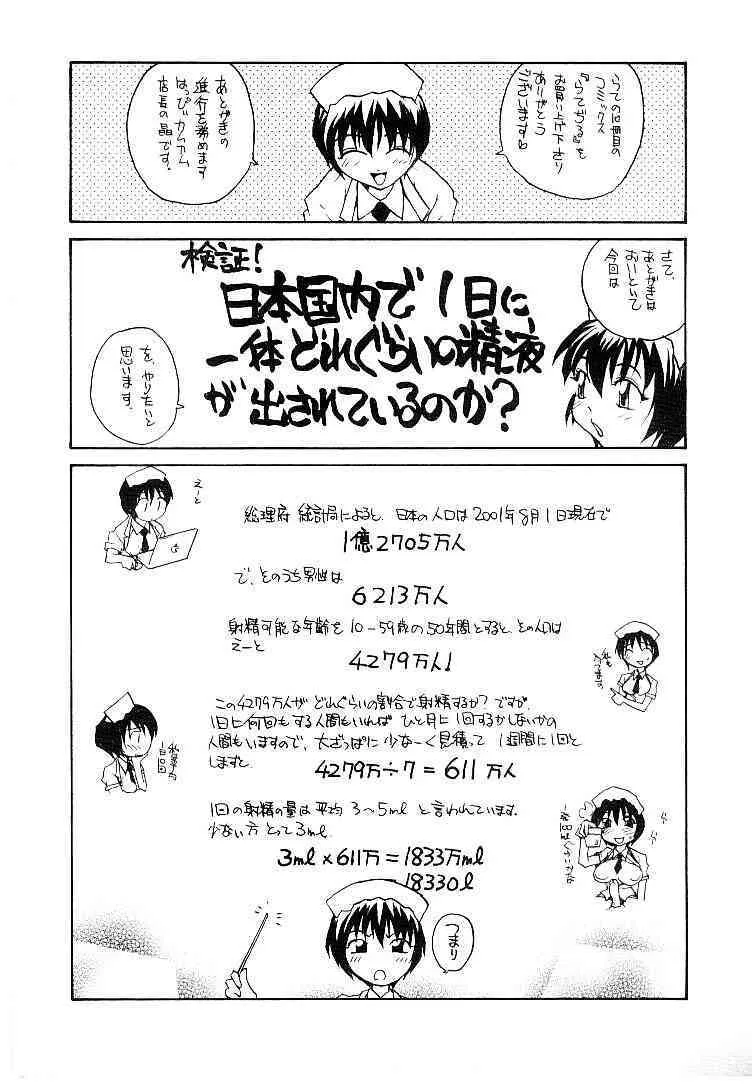 らっての10冊目の
コミックス
『らでぃる』を
お買い上げ下さり
ありがとう
ございます♡
あとがきの
進行を務めます
はっぴぃカムカム
店長の晶です。
さて、
あとがきは
おいといて
今回は
検証!
日本国内で1日に、
一体どれぐらいの精液
が出されているのか?
を、やりたいと
思います。
えーと
総理府 統計局によると、日本の人口は2001年8月1日現在で
1億2705万人
で、そのうち男性は
6213万人
射精可能な年齢を10-59歳の50年間とすると、その人口は
えーと
4279万人!
私も
入ってます
この4279万人がどれぐらいの割合で射精するか?ですが、
1日に何回もする人間もいればひと月に1回するかしないかの
人間もいますので、大ざっぱに少なーく見積って1週間に1回と
しますと、
4279万÷7=611万人
私は平均
1日10回
1回の射精の量は平均3〜5mlと言われています。
少ない方とって3ml
3ml×611万=1833万ml
=18330l
一発100mlぐらいかな
つまり